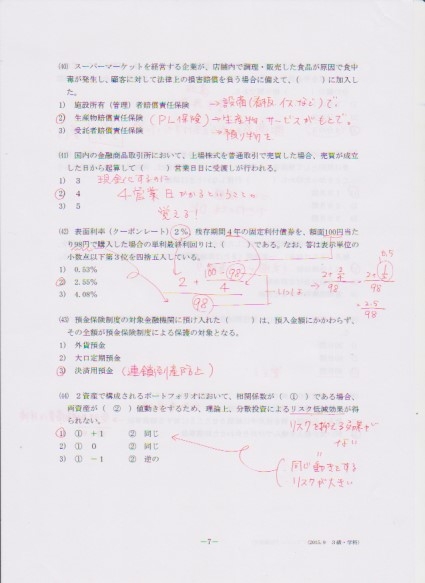 (40) スーパーマーケットを経営する企業が、店舗内で調理・販売した食品が原因で食中
毒が発生し、顧客に対して法律上の損害賠償を負う場合に備えて、( )に加入し
た。
1) 施設所有(管理)者賠償責任保険 →設備(看板、イスなど)で。
2) 生産物賠償責任保険 (PL保険)→生産物、サービスがもとで。
3) 受託者賠償責任保険 →預り物を
(41) 国内の金融商品取引所において、上場株式を普通取引で売買した場合、売買が成立
した日から起算して( )営業日目に受渡しが行われる。
1) 3 現金にするのに
2) 4 4営業日かかるということ。
3) 5 覚える!
(42) 表面利率(クーポンレート)2%、残存期間4年の固定利付債券を、額面100円当た
り98円で購入した場合の単利最終利回りは、( )である。なお、答は表示単位の
小数点以下第3位を四捨五入している。
1) 0.53%
2) 2.55%
3) 4.08%
2 + 100 - 98
4
98
0.5
2.5
98
(43) 預金保険制度の対象金融機関に預け入れた( )は、預入金額にかかわらず、
その全額が預金保険制度による保護の対象となる。
1) 外貨預金
2) 大口定期預金
3) 決済用預金 (連鎖倒産防止)
(44) 2資産で構成されるポートフォリオにおいて、相関係数が( ① )である場合、
両資産が( ② )値動きをするため、理論上、分散投資によるリスク低減効果が得
られない。
1) ① +1 ② 同じ
2) ① 0 ② 同じ
3) ① -1 ② 逆の
リスクを抑える効果が
ない
同じ動きをする
リスクが大きい
-7-